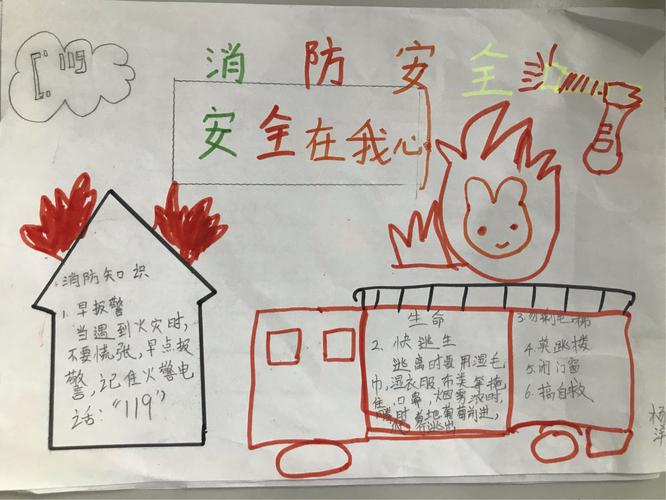 119
消防安全
安全在我心
消防知识
1.早报警
当遇到火灾时,
不要慌张,早点报
警,记住火警电
话:“119”
生命
2、快逃生
逃离时要用湿毛
巾,湿衣服布类等掩
住口鼻,烟雾浓时,
匍匐前进,
逃出
3.勿乘电梯
4.莫跳楼
5.闭门窗
6.搞自救
杨洋